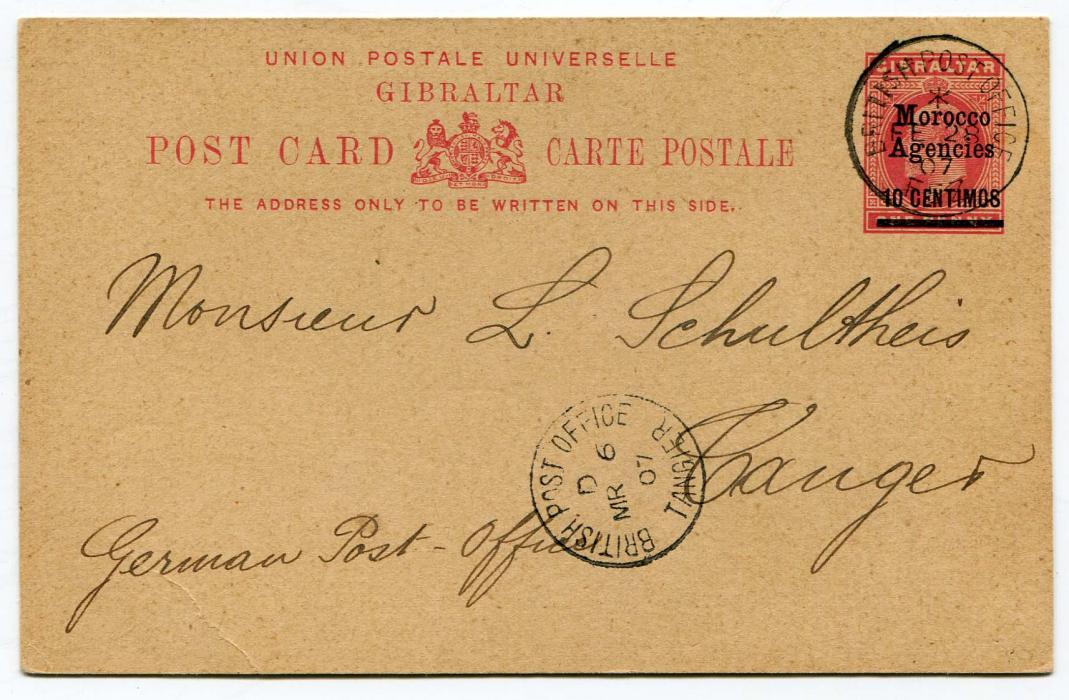 UNION POSTALE UNIVERSELLE
GIBRALTAR
POST CARD CARTE POSTALE
THE ADDRESS ONLY TO BE WRITTEN ON THIS SIDE.
GIBRALTAR
Morocco
Agencies
10 CENTIMOS
ONE PENNY
BRITISH POST OFFICE
FE 28
07
FEZ
Monsieur L. Schultheis
Tanger
German Post-Office
BRITISH POST OFFICE TANGIER
D
MR 6
07